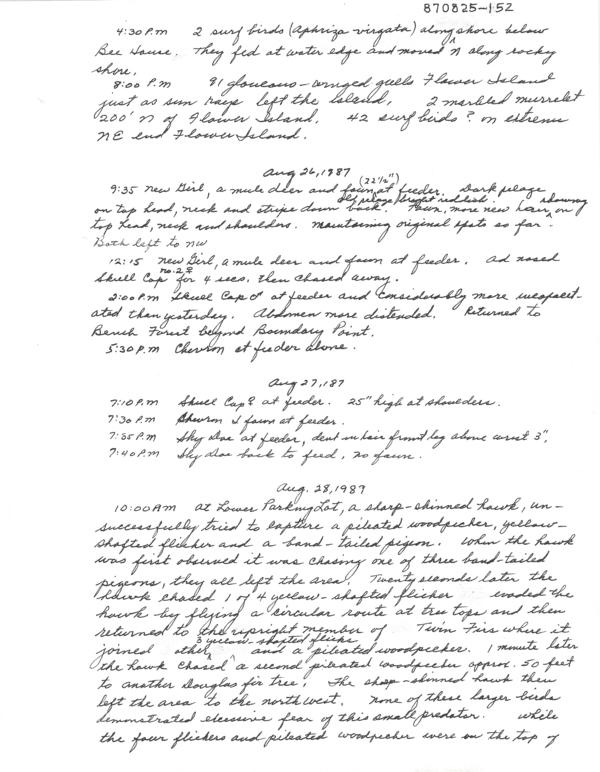 870825-152
4:30 P.M 2 surf birds (Aphriza virgata) along shore below
Bee House. They fed at water edge and moved N along rocky
shore.
8:00 P.M 91 glaucous-winged gulls Flower Island
just as sun rays left the island. 2 marbled murrelet
200' N of Flower Island. 42 surf birds? on extreme
NE end Flower Island.
Aug 26, 1987
9:35 New Girl, a mule deer and fawn (22½") at feeder. Dark pelage
on top head, neck and stripe down back. Old pelage bright reddish. Fawn, more new hair showing on
top head, neck and shoulders. Maintaining original spots so far.
Both left to NW
12:15 New Girl, a mule deer and fawn at feeder. Ad nosed
Skull Cap no. 2 ♀ for 4 secs. then chased away.
2:00 P.M Skull Cap ♂ at feeder and considerably more incapacit-
ated than yesterday. Abdomen more distended. Returned to
Bench Forest beyond Boundary Point.
5:30 P.M Chevron at feeder alone.
Aug 27, 187
7:10 P.M Skull Cap ♀ at feeder. 25" high at shoulders.
7:30 P.M Chevron & fawn at feeder.
7:35 P.M Sky Doe at feeder, dent in hair front leg above wrist 3".
7:40 P.M Sky Doe back to feed, no fawn.
Aug. 28, 1987
10:00 AM at Lower Parking Lot, a sharp-shinned hawk, un-
successfully tried to capture a pileated woodpecker, yellow-
shafted flicker and a band-tailed pigeon. When the hawk
was first observed it was chasing one of three band-tailed
pigeons, they all left the area. Twenty seconds later the
hawk chased 1 of 4 yellow-shafted flicker evaded the
hawk by flying a circular route at tree tops and then
returned to the upright member of Twin Firs where it
joined other 3 yellow-shafted flicker and a pileated woodpecker. 1 minute later
the hawk chased a second pileated woodpecker approx. 50 feet
to another Douglas fir tree. The sharp-shinned hawk then
left the area to the northwest. None of these larger birds
demonstrated excessive fear of this small predator. While
the four flickers and pileated woodpecker were on the top of